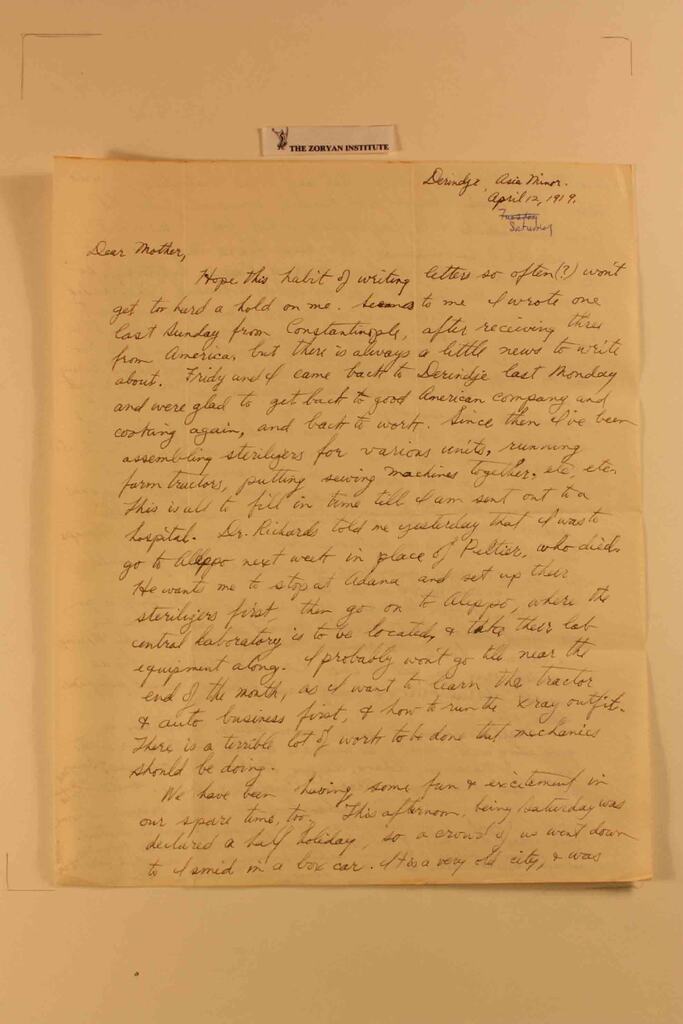 THE ZORYAN INSTITUTE
Derindje, Asia Minor.
April 12, 1919.
Tuesday
Saturday
Dear Mother,
Hope this habit of writing letters so often(?) won't
get too hard a hold on me. Seems to me I wrote one
last Sunday from Constantinople, after receiving three
from America, but there is always a little news to write
about. Fridy and I came back to Derindje last Monday
and were glad to get back to good American company and
cooking again, and back to work. Since then I've been
assembling sterilizers for various units, running
farm tractors, putting sewing machines together, etc, etc.
This is all to fill in time till I am sent out to a
hospital. Dr. Richards told me yesterday that I was to
go to Aleppo next week in place of Peltier, who died.
He wants me to stop at Adana and set up their
sterilizers first, then go on to Aleppo, where the
central laboratory is to be located, & take their lab
equipment along. I probably won't go till near the
end of the month, as I want to learn the tractor
& auto business first, & how to run the X-ray outfit.
There is a terrible lot of work to be done that mechanics
should be doing.
We have been having some fun & excitement in
our spare time, too. This afternoon, being Saturday was
declared a half holiday, so a crowd of us went down
to Ismid in a box car. It is a very old city, & was